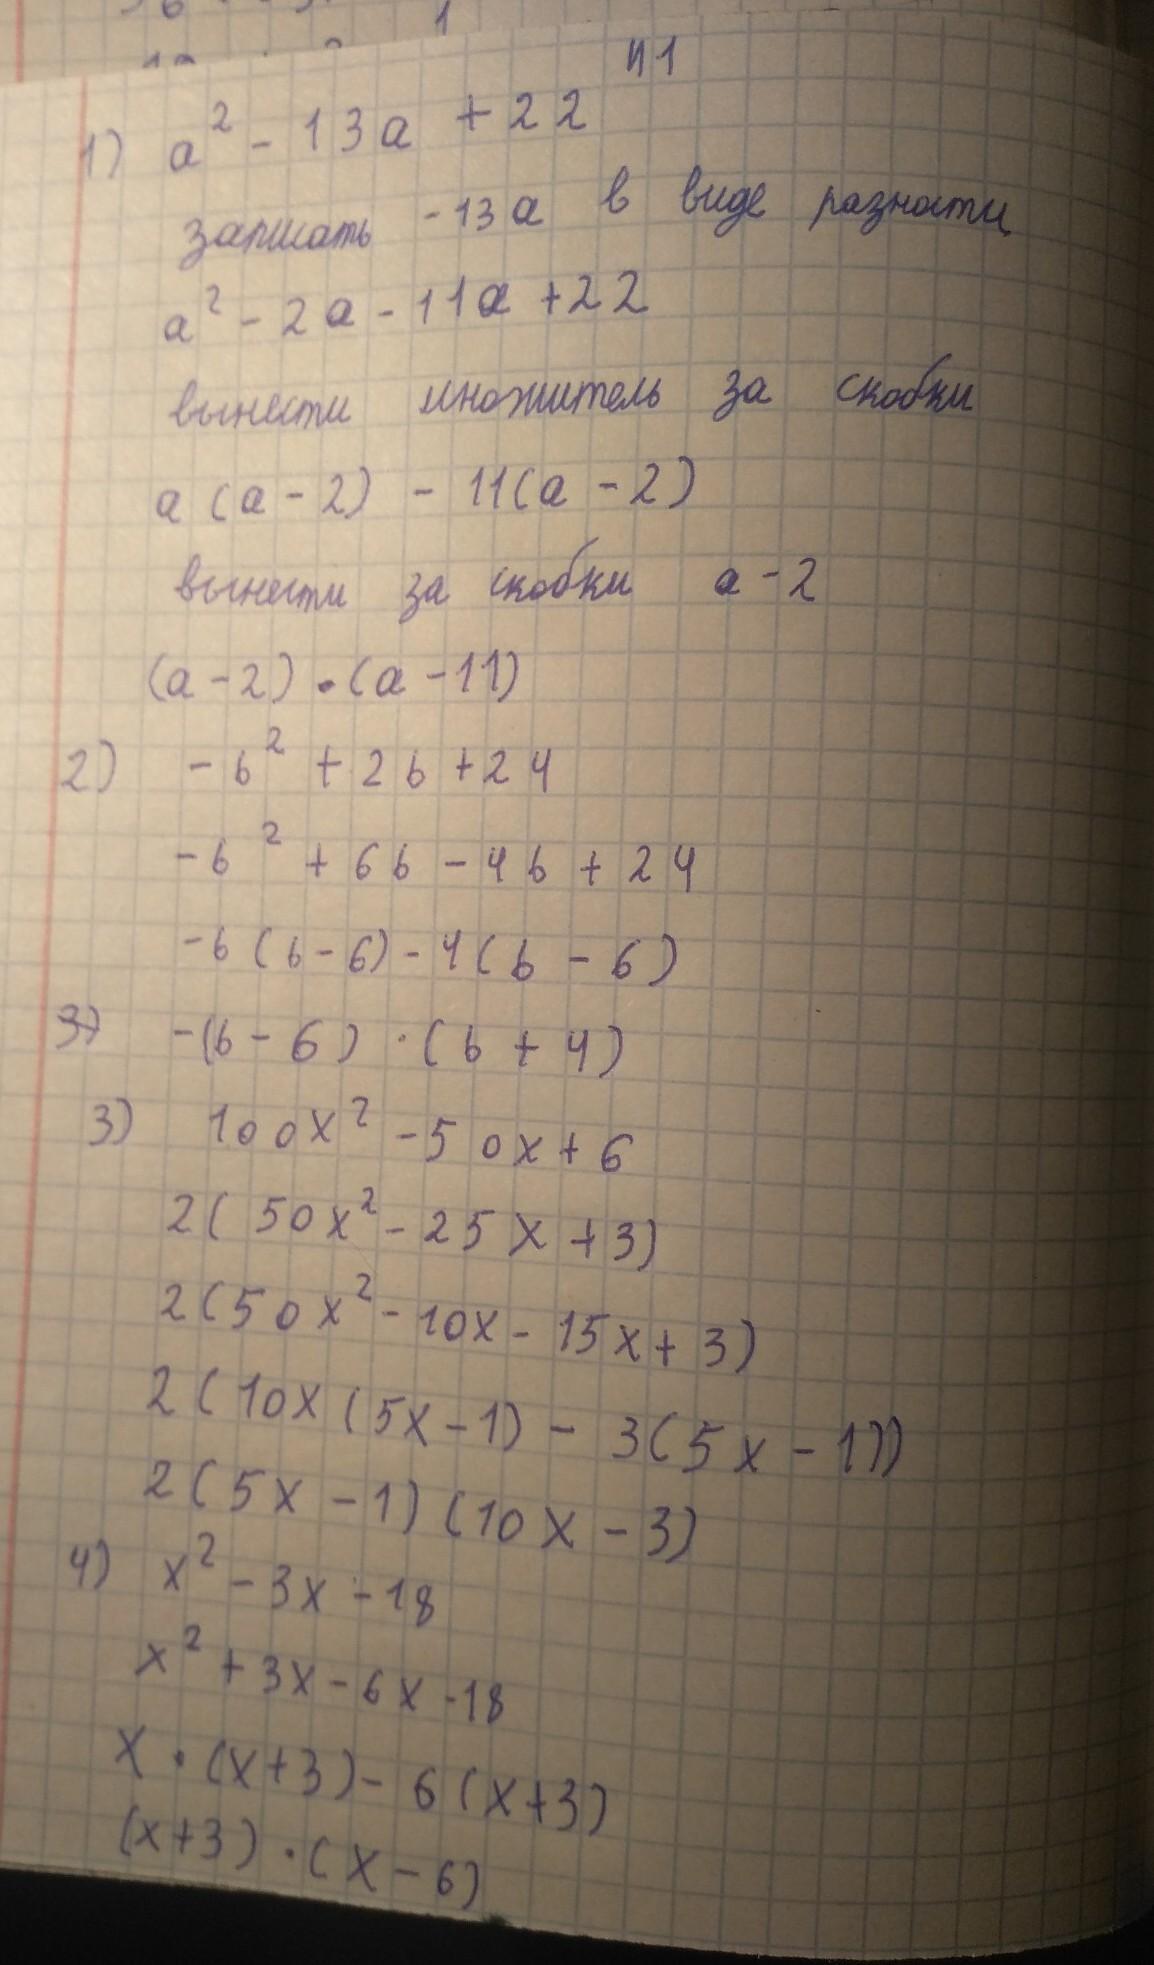 И1
1) a² - 13a + 22
записать -13a в виде разности
a² - 2a - 11a + 22
вынести множитель за скобки
a (a - 2) - 11(a - 2)
вынести за скобки a - 2
(a - 2) • (a - 11)
2) - b² + 2b + 24
- b² + 6b - 4b + 24
- b (b - 6) - 4 (b - 6)
3) -(b - 6) · (b + 4)
3) 100x² - 50x + 6
2( 50x² - 25x + 3)
2(50x² - 10x - 15x + 3)
2 (10x (5x - 1) - 3(5x - 1))
2 (5x - 1) (10x - 3)
4) x² - 3x - 18
x² + 3x - 6x - 18
x • (x+3) - 6 (x+3)
(x+3) • (x - 6)